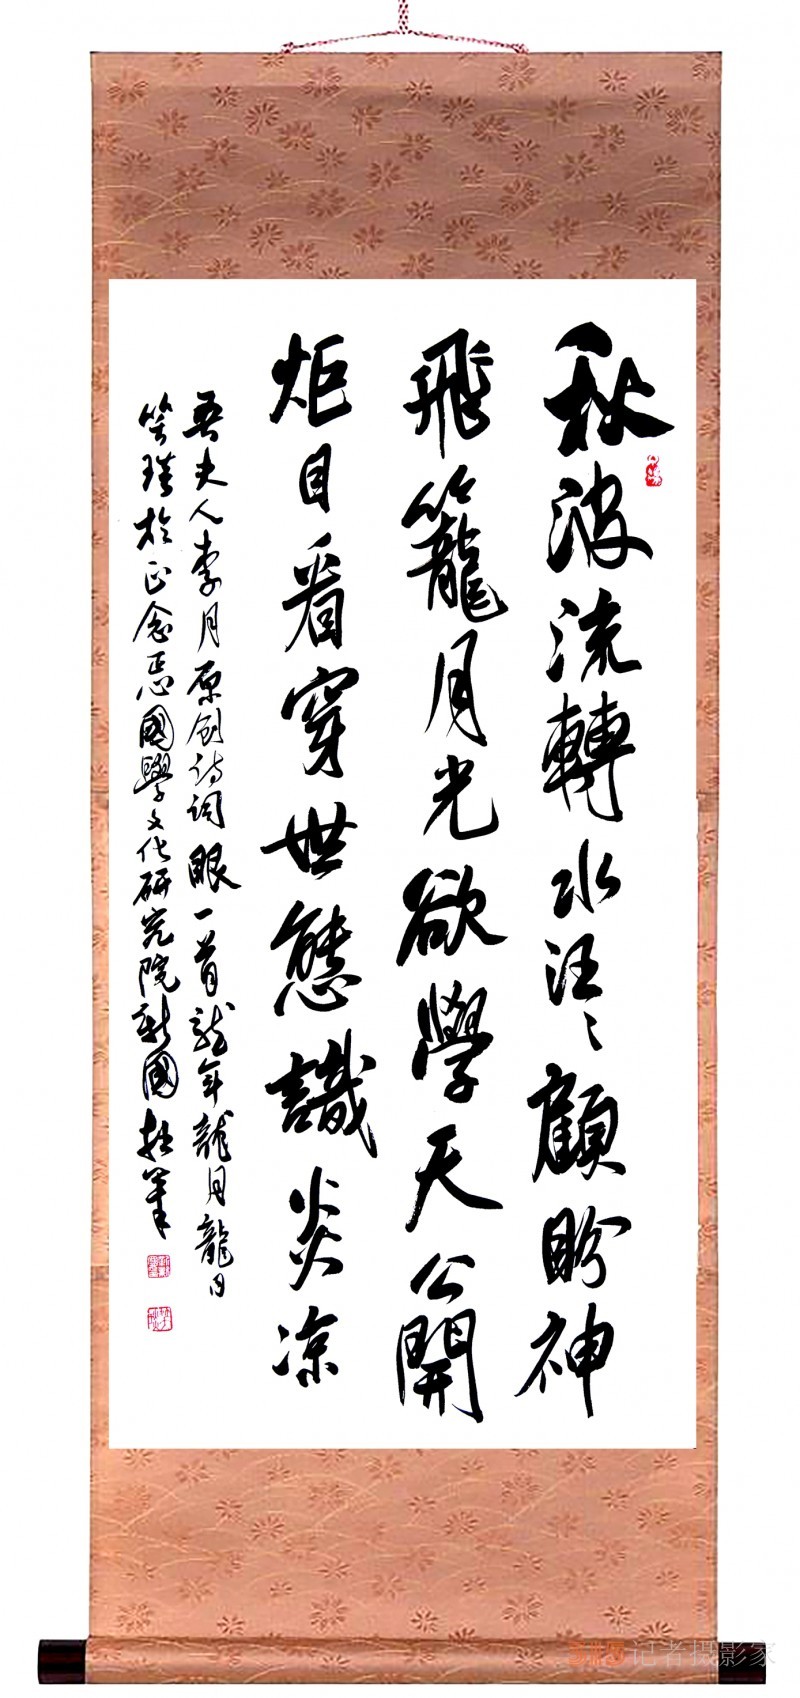 秋波流轉水汪〻顧盼神
飛籠月光欲學天公開
炬目看穿世態識炎凉
吾夫人李月原创诗词眼一首龙年龍月龍日
於正念正心國學文化研究院新國拙筆
315记者摄影家